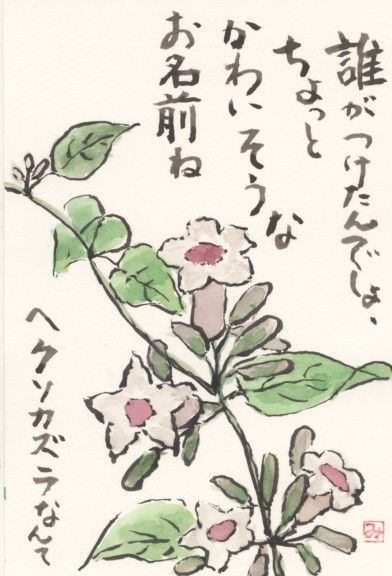 誰がつけたんでしょ、
ちょっと
かわいそうな
お名前ね
ヘクソカズラなんて